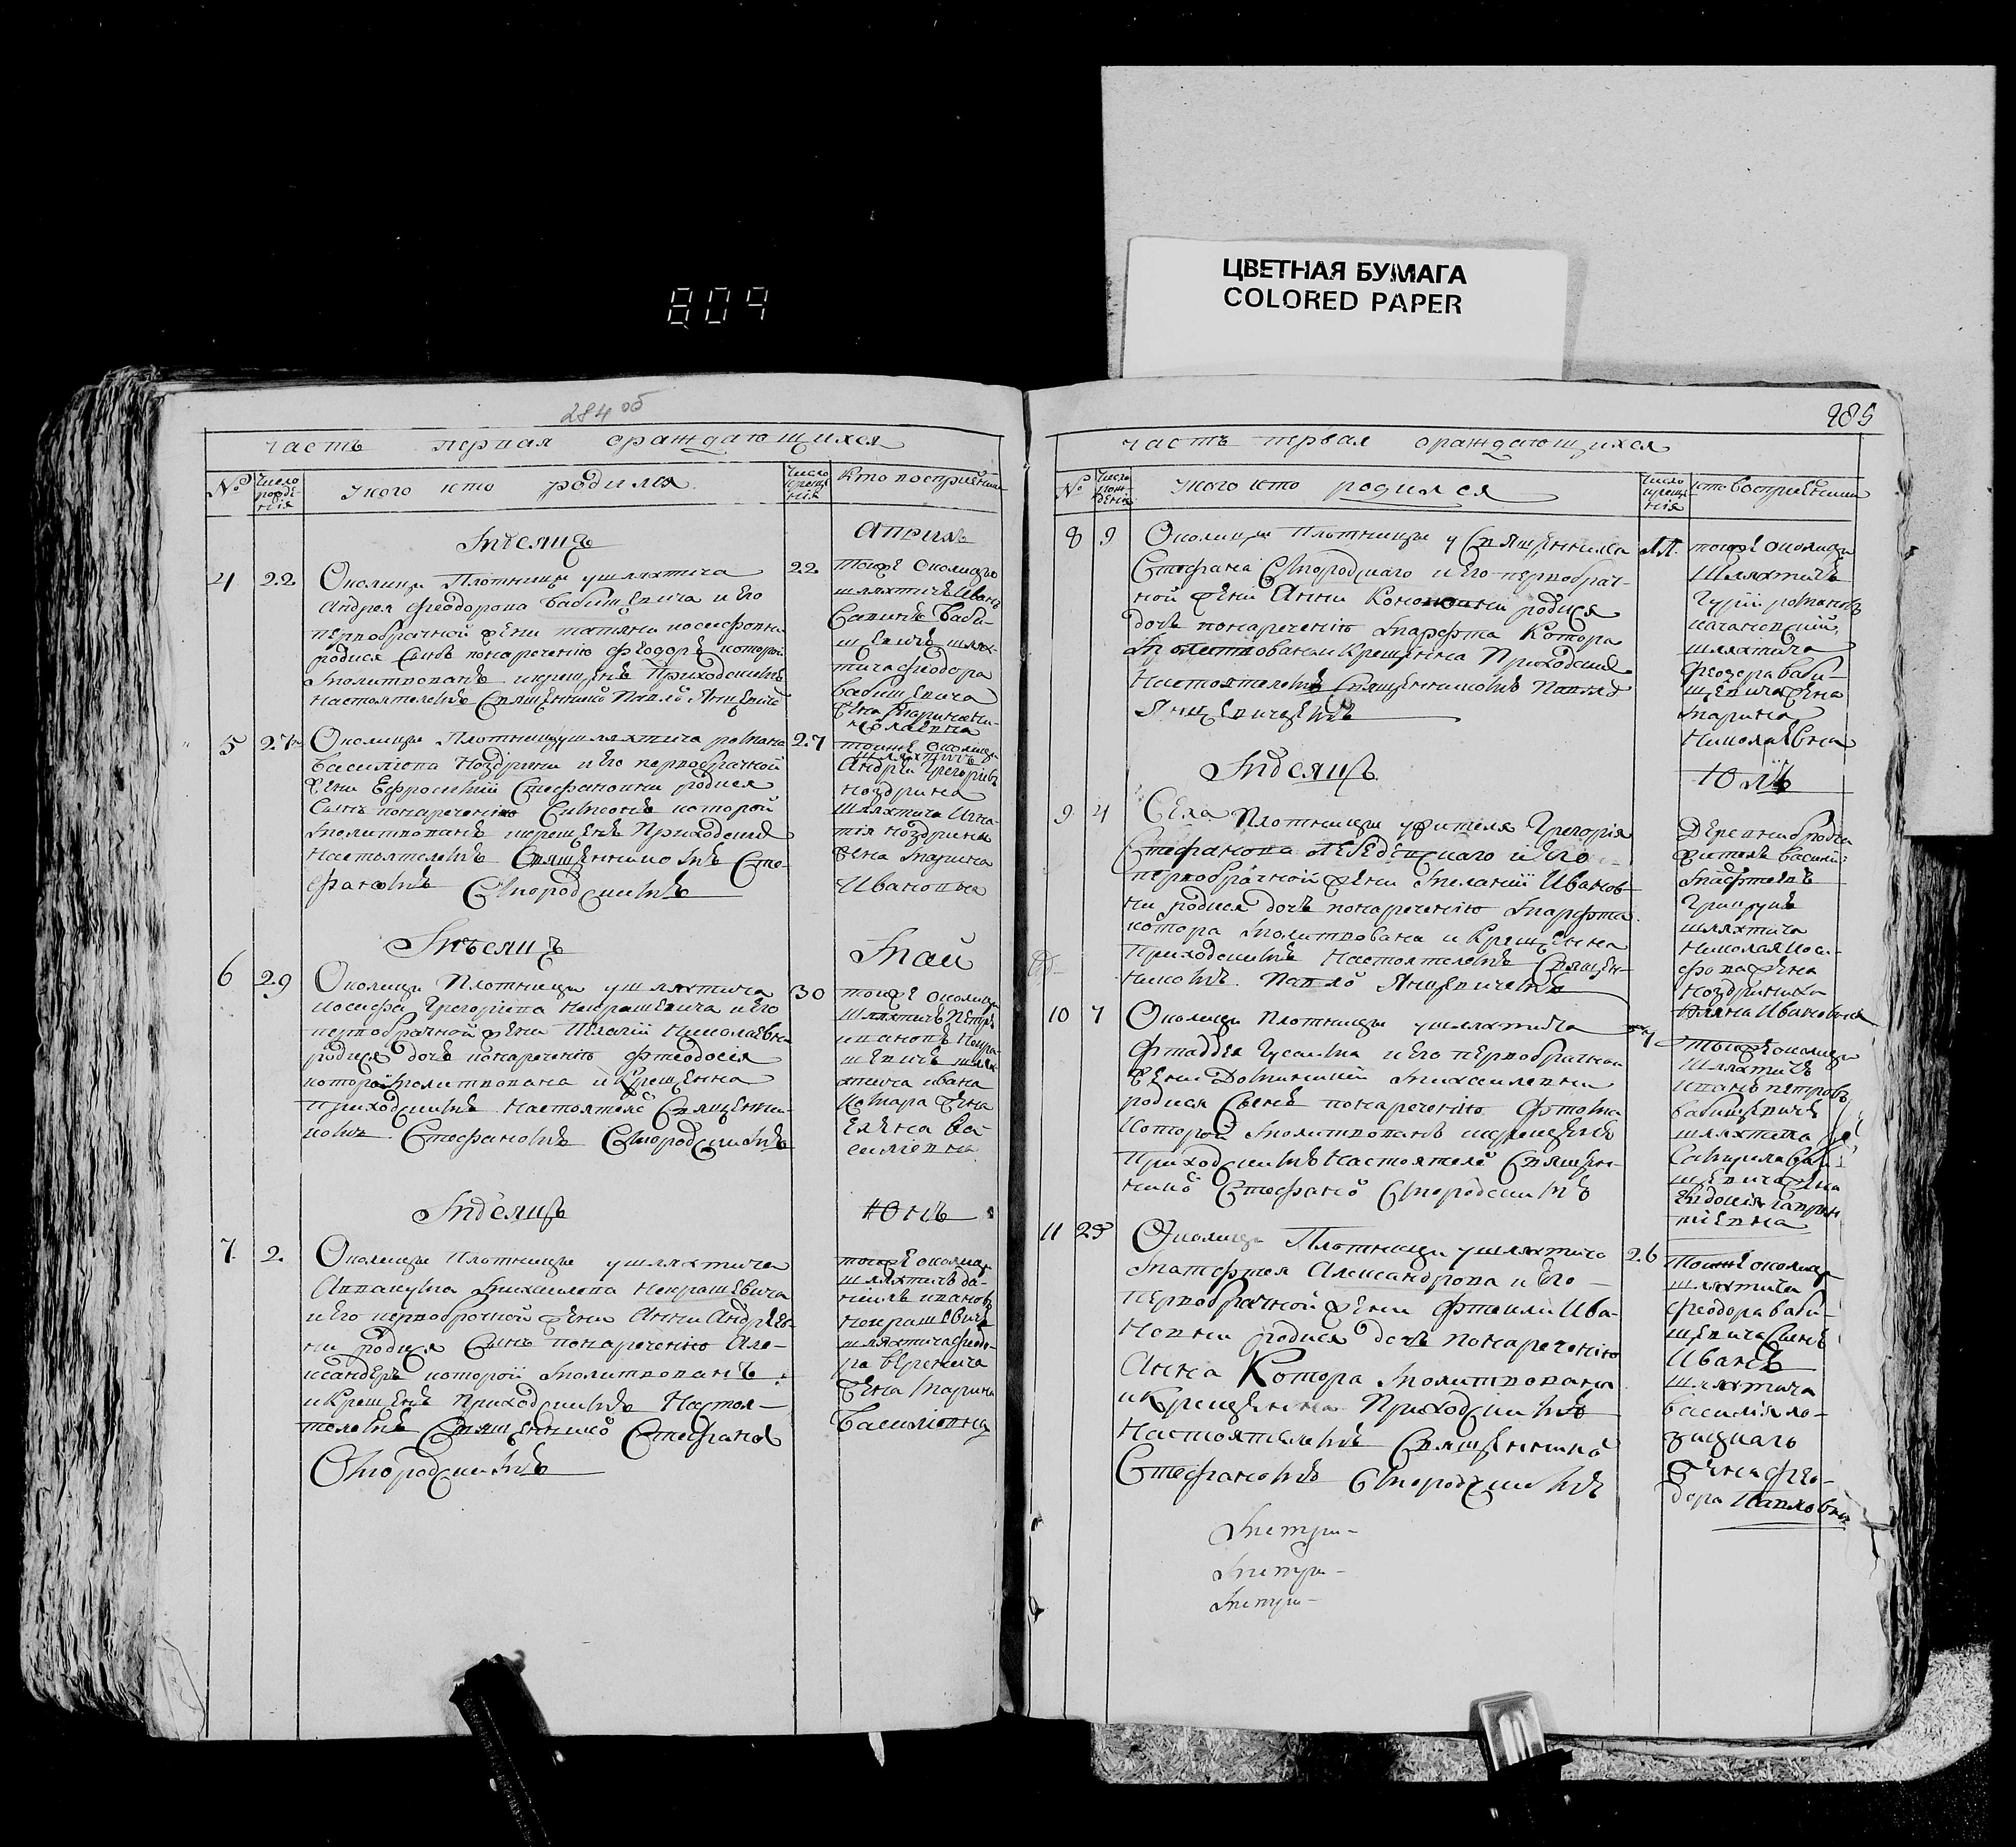 ЦВЕТНАЯ БУМАГА
COLORED PAPER
809
284 об
часть первая ораждающихся
№ Число рожденія
у кого кто родился
Число крещенія
Кто восприемники
Мѣсяцъ
Априль
4 22
Околицы Плотницы у шляхтича
Андрея Феодорова Бабишевича и Его
первобрачной жены татяны иосифовны
родися сынъ понаречению Феодоръ которой
молитвованъ и крещенъ Приходскимъ
настоятелемъ Священнико Павло Янцевиче
22
тояже Околицы
шляхтичъ Иванъ
Савинъ Баби-
шевичъ шлях-
тича Феодора
Бабишевича
жена Марина Ни-
колаевна
5 27
Околицы Плотницы у шляхтича романа
Василіева Ноздрины и Его первобрачной
жены Ефросиніи Стефановны родися
сынъ понаречению Симеонъ которой
молитвованъ и крещенъ Приходским
настоятелемъ Священникомъ Сте-
фаномъ Смородскимъ
27
тояже Околицы
шляхтичъ
Андрей Григоріевъ
Ноздрина
шляхтича Игна-
тія Ноздрины
жена Марина
Ивановна
Мѣсяцъ
Май
6 29
Околицы Плотницы у шляхтича
иосифа Григоріева Некрашевича и Его
первобрачной жены Пелагіи Николаевны
родися дочь понаречению Феодосія
которая молитвована и Крещенна
Приходскимъ Настоятеле Священни-
комъ Стефаномъ Смородскимъ
30
тояже околицы
шляхтичъ Петръ
ивановъ Некра-
шевичъ шлях-
тича ивана
Комара жена
Елена Ва-
силіевна
Мѣсяцъ
Юнь
7 2
Околицы Плотницы у шляхтича
Аввакума Михаилова Некрашевича
и Его первобрачной жены Анны Андреев-
ны родися Сынъ понаречению Але-
ксандеръ которой молитвованъ
и Крещенъ Приходскимъ Настоя-
телемъ Священнико Стефано
Смородскимъ
тояже околицы
шляхтичъ да-
ніилъ ивановъ
Некрашевичъ
шляхтича Феодо-
ра Веренича
жена Марина
Василіовна
285
часть первая ораждающихся
№ Число рожденія
у кого кто родился
Число крещенія
кто восприемники
8 9
Околицы Плотницы у Священника
Стефана Смородскаго и Его первобрач-
ной жены Анны родися
дочь понаречению Марфта Котора
Молитвована и Крещенна Приходским
Настоятелемъ Священникомъ Павло
Янцевичемъ
тояже околицы
Шляхтичъ
Гурій романовъ
качановскій
шляхтича
Феодора Баби-
шевича жена
Марина
Николаевна
Мѣсяцъ
Юль
9 4
Села Плотницы жителя Григорія
Стефанова Лебедевскаго и Его
первобрачной жены Меланіи Иванов-
ны родися дочь понаречению Марфта
котора молитвована и Крещенна
Приходскимъ Настоятелемъ Священ-
никомъ Павло Янцевичемъ
Деревни бродча
житель Василій
Грицукъ
шляхтича
Николая Іоси-
фова жена
Ноздриниха
Ивановна
10 7
Околицы Плотницы у шляхтича
Фтаддея Гусаина и Его первобрачной
жены Доминикіи Михаиловны
родися Сынъ понаречению Фтома
Которой молитвованъ и крещенъ
Приходскимъ Настоятеле Священ-
нико Стефано Смородскимъ
7
тояже околицы
Шляхтичъ
Ивано петровъ
бабишевичъ
шляхтича
Гаврила Баби-
шевича жена
Евдокія Гаври-
шевна
11 25
Околицы Плотницы у шляхтича
Матфтея Александрова и Его
первобрачной жены Фтеклы Ива-
новны родися дочь понаречению
Анна Котора молитвована
и Крещенна Приходскимъ
Настоятелемъ Священнико
Стефаномъ Смородскимъ
26
Тояже околицы
шляхтича
Феодора Баби-
шевича Сынъ
Иванъ
шляхтича
Василія ло-
зицкаго
жена Фео-
дора Павловна